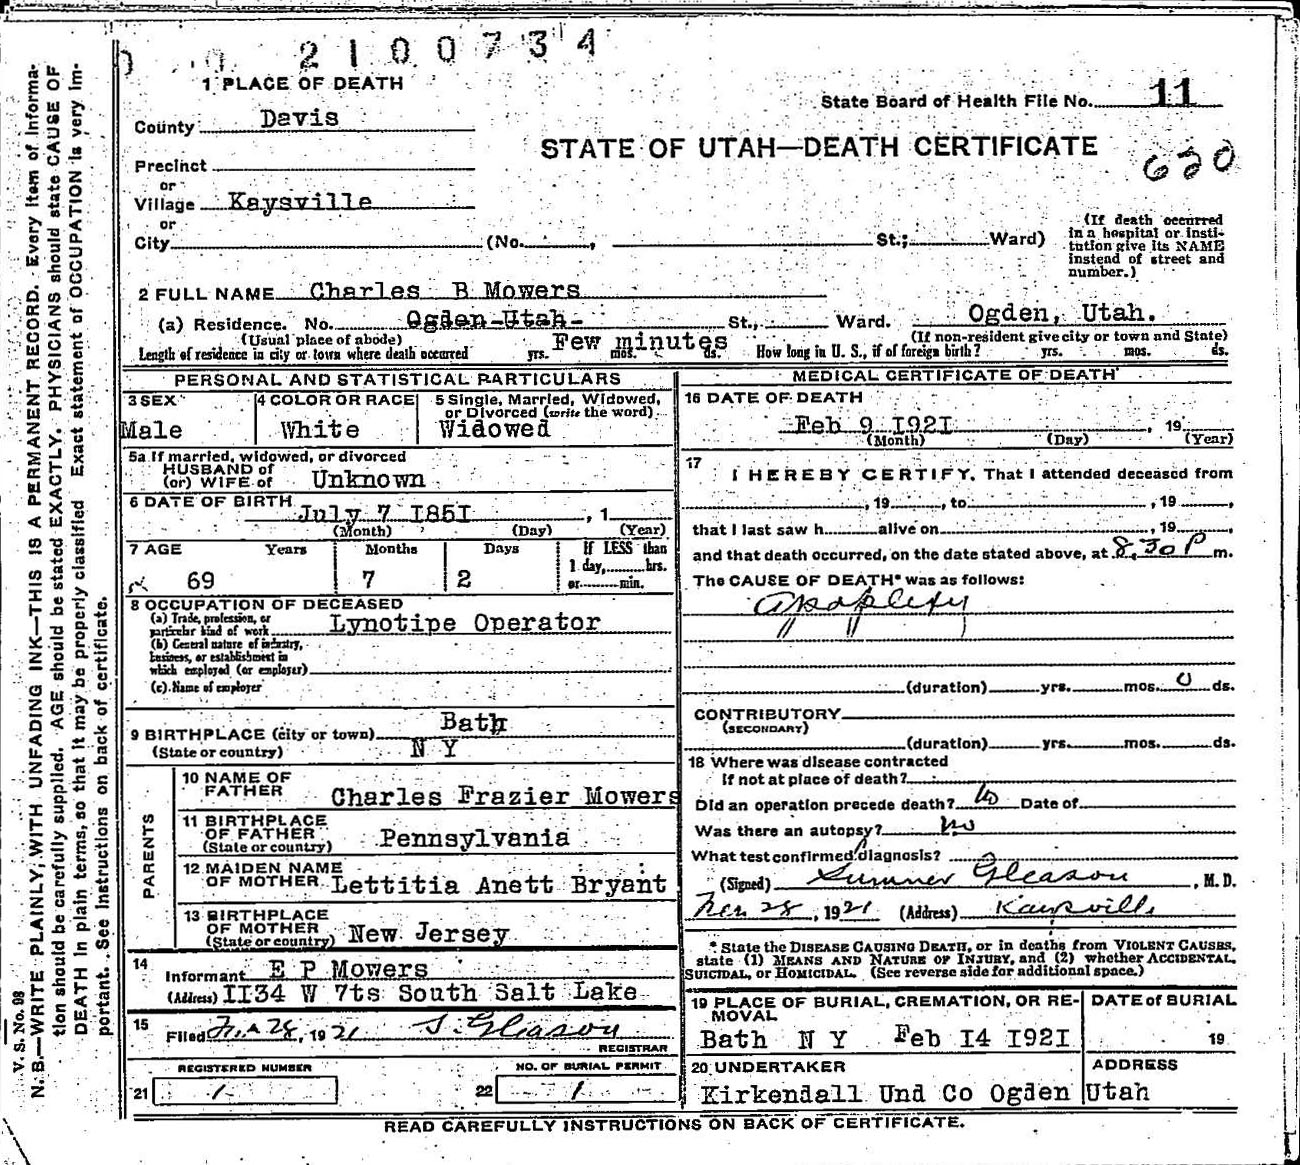 2100734
1 PLACE OF DEATH
State Board of Health File No. 11
County Davis
STATE OF UTAH—DEATH CERTIFICATE
620
Precinct
or
Village Kaysville
or
City (No. , St.; Ward)
(If death occurred in a hospital or insti-
tution give its NAME
instead of street and
number.)
2 FULL NAME Charles B Mowers
(a) Residence. No. Ogden-Utah- St., Ward. Ogden, Utah.
(Usual place of abode) (If non-resident give city or town and State)
Length of residence in city or town where death occurred Few minutes yrs. mos. ds. How long in U. S., if of foreign birth? yrs. mos. ds.
PERSONAL AND STATISTICAL PARTICULARS
3 SEX
Male
4 COLOR OR RACE
White
5 Single, Married, Widowed,
or Divorced (write the word)
Widowed
5a If married, widowed, or divorced
HUSBAND of
(or) WIFE of Unknown
6 DATE OF BIRTH
July 7 I85I , 1
(Month) (Day) (Year)
7 AGE Years Months Days If LESS than
1 day, hrs.
69 7 2 or min.
8 OCCUPATION OF DECEASED
(a) Trade, profession, or
particular kind of work Lynotipe Operator
(b) General nature of industry,
business, or establishment in
which employed (or employer)
(c) Name of employer
9 BIRTHPLACE (city or town) Bath
(State or country) N Y
PARENTS
10 NAME OF
FATHER Charles Frazier Mowers
11 BIRTHPLACE
OF FATHER
(State or country) Pennsylvania
12 MAIDEN NAME
OF MOTHER Lettitia Anett Bryant
13 BIRTHPLACE
OF MOTHER
(State or country) New Jersey
14
Informant E P Mowers
(Address) II34 W 7ts South Salt Lake
15
Filed 28, 1921 S. Gleason
REGISTRAR
REGISTERED NUMBER
21 1
NO. OF BURIAL PERMIT
22 1
MEDICAL CERTIFICATE OF DEATH
16 DATE OF DEATH
Feb 9 I92I , 19
(Month) (Day) (Year)
17
I HEREBY CERTIFY, That I attended deceased from
, 19 , to , 19 ,
that I last saw h alive on , 19 ,
and that death occurred, on the date stated above, at 8.30 P m.
The CAUSE OF DEATH* was as follows:
Apoplexy
(duration) yrs. mos. 0 ds.
CONTRIBUTORY
(SECONDARY)
(duration) yrs. mos. ds.
18 Where was disease contracted
if not at place of death?
Did an operation precede death? No Date of
Was there an autopsy? No
What test confirmed diagnosis?
(Signed) Sumner Gleason , M. D.
28, 1921 (Address) Kaysville
* State the DISEASE CAUSING DEATH, or in deaths from VIOLENT CAUSES,
state (1) MEANS AND NATURE OF INJURY, and (2) whether ACCIDENTAL,
SUICIDAL, or HOMICIDAL. (See reverse side for additional space.)
19 PLACE OF BURIAL, CREMATION, OR RE-
MOVAL
Bath N Y Feb I4 I92I
DATE of BURIAL
19
20 UNDERTAKER
Kirkendall Und Co Ogden
ADDRESS
Utah
READ CAREFULLY INSTRUCTIONS ON BACK OF CERTIFICATE.
V. S. No. 98
N. B.—WRITE PLAINLY, WITH UNFADING INK—THIS IS A PERMANENT RECORD. Every item of informa-
tion should be carefully supplied. AGE should be stated EXACTLY. PHYSICIANS should state CAUSE OF
DEATH in plain terms, so that it may be properly classified. Exact statement of OCCUPATION is very im-
portant. See instructions on back of certificate.